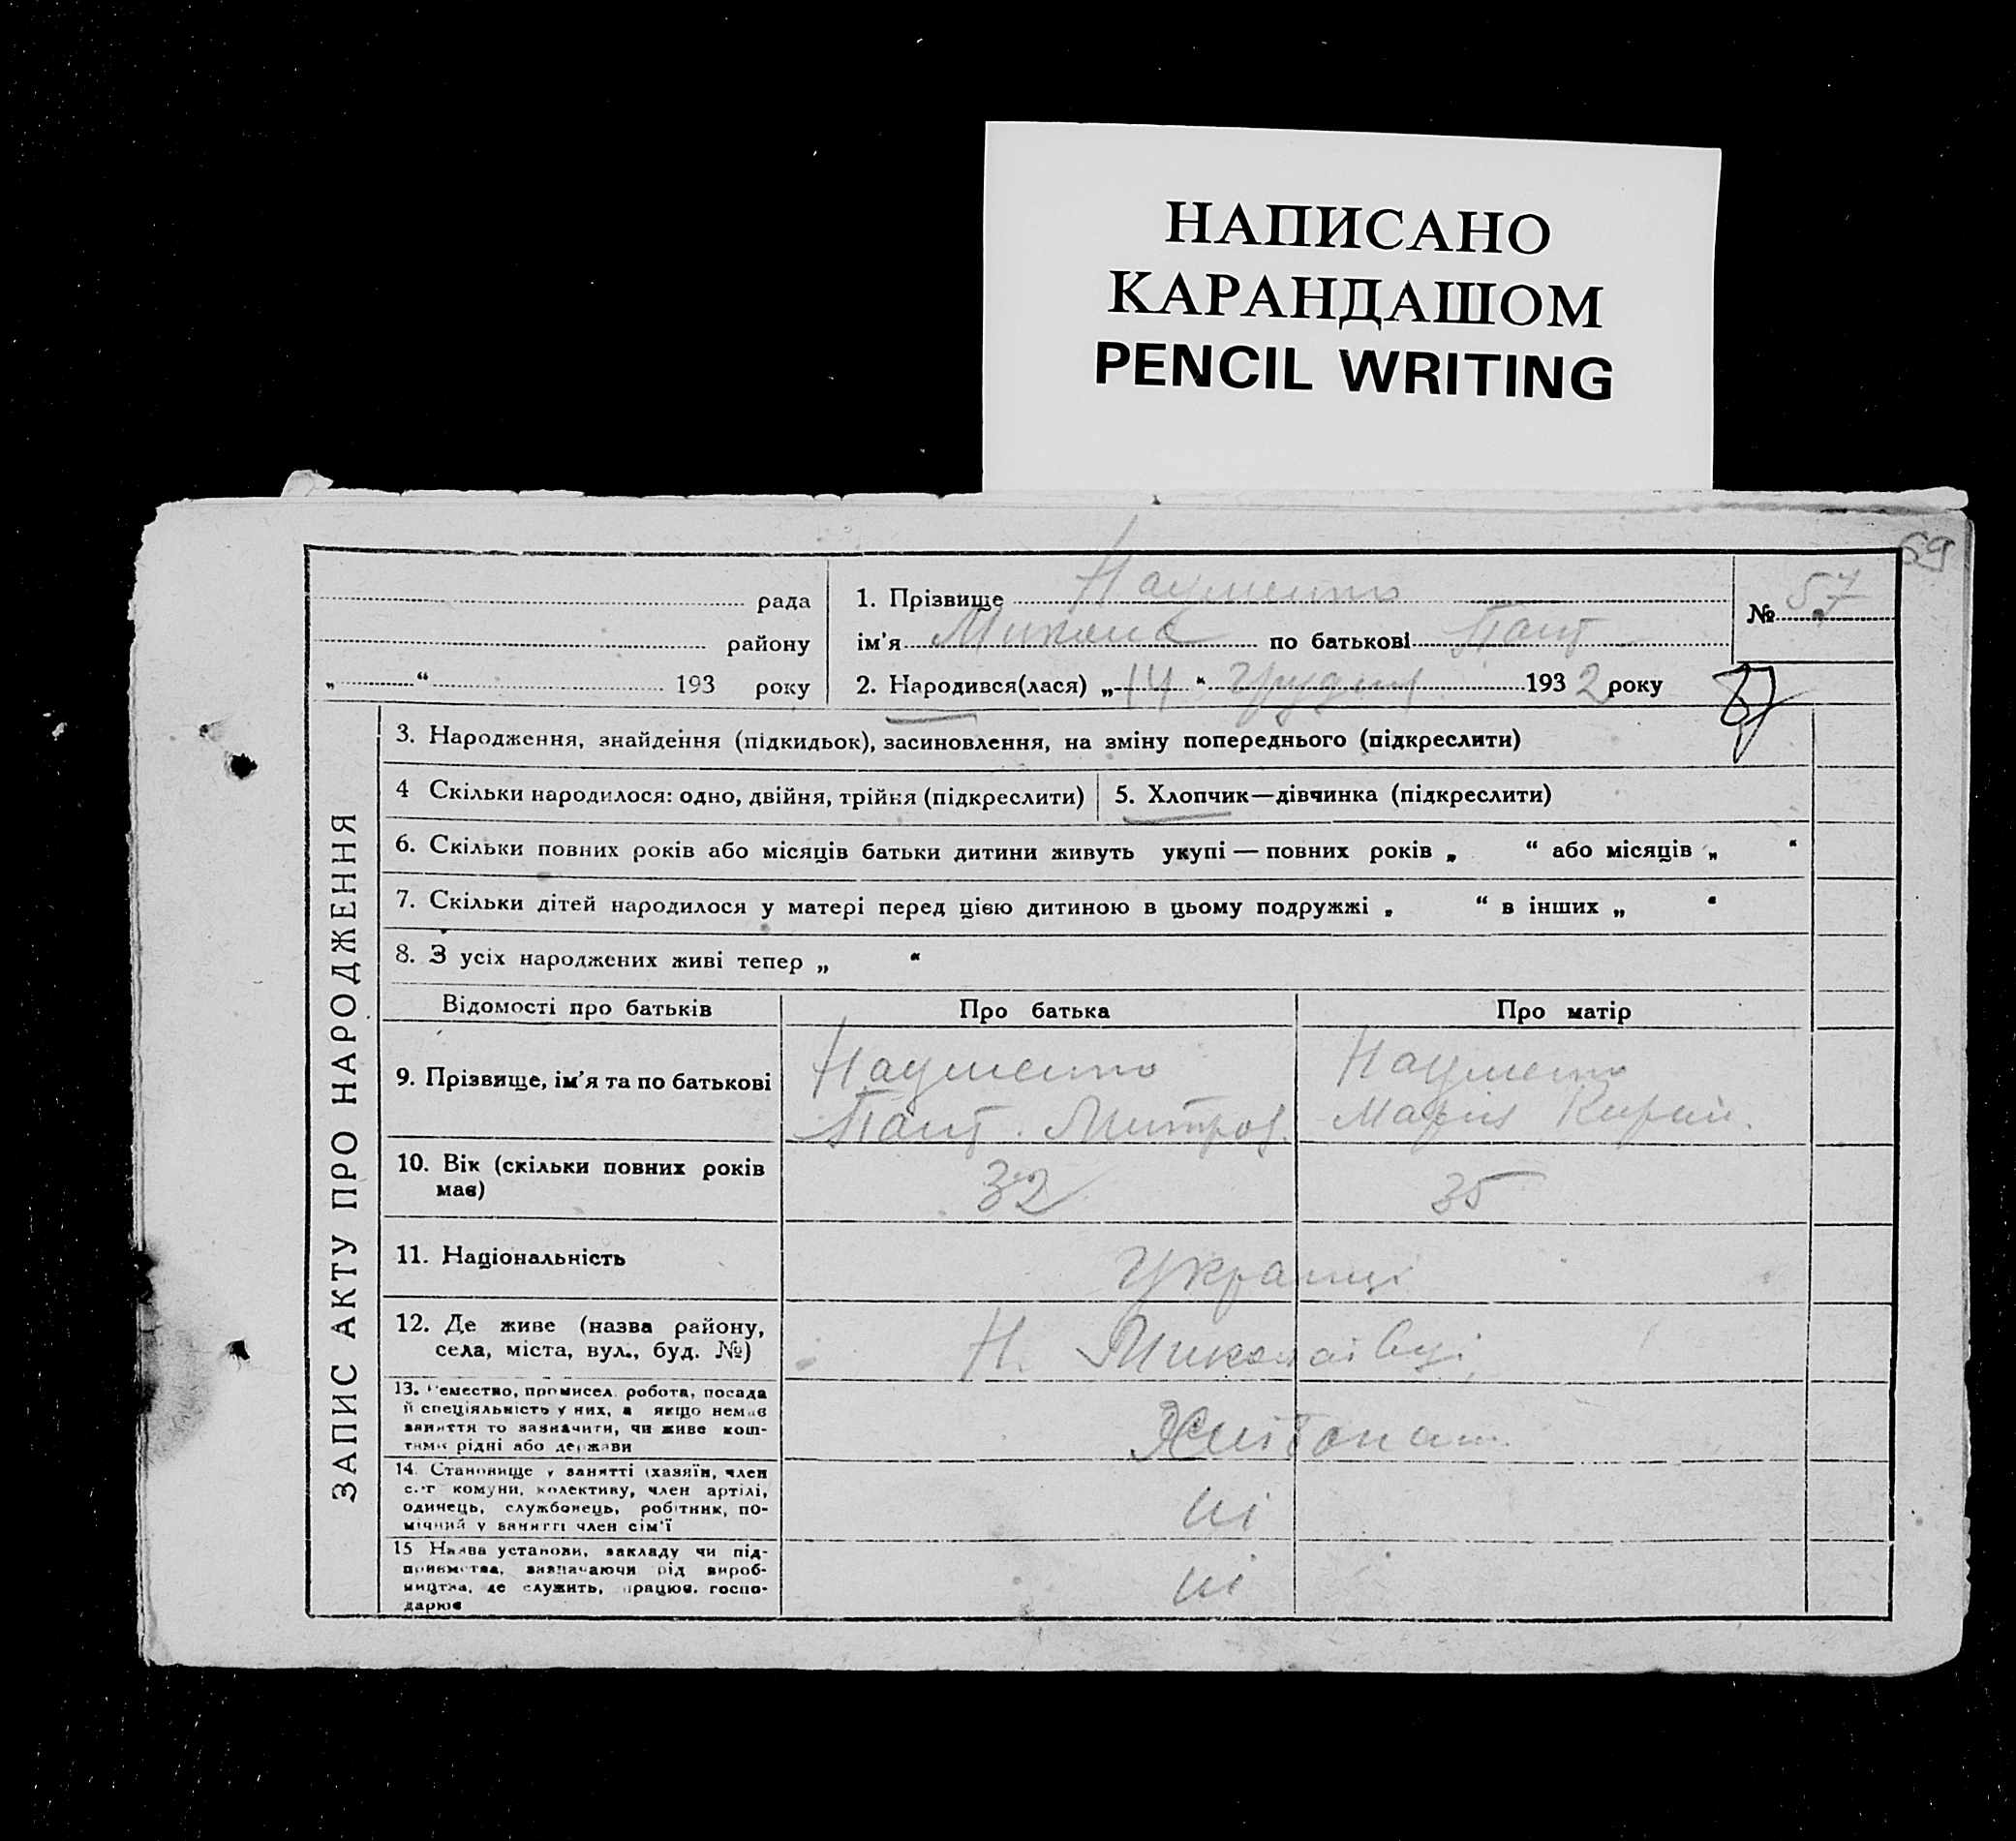 НАПИСАНО
КАРАНДАШОМ
PENCIL WRITING
59
рада
району
„ “ 193 року
1. Прізвище Науменко
ім’я Микола по батькові Пант
2. Народився(лася) „14“ Грудня 1932 року
№ 57
57
ЗАПИС АКТУ ПРО НАРОДЖЕННЯ
3. Народження, знайдення (підкидьок), засиновлення, на зміну попереднього (підкреслити)
4 Скільки народилося: одно, двійня, трійня (підкреслити)
5. Хлопчик—дівчинка (підкреслити)
6. Скільки повних років або місяців батьки дитини живуть укупі — повних років „ “ або місяців „ “
7. Скільки дітей народилося у матері перед цією дитиною в цьому подружжі „ “ в інших „ “
8. З усіх народжених живі тепер „ “
Відомості про батьків Про батька Про матір
9. Прізвище, ім’я та по батькові
Науменко
Пант. Митроф.
Науменко
Марія
10. Вік (скільки повних років
має)
32
35
11. Національність
Українці
12. Де живе (назва району,
села, міста, вул., буд. №)
Н. Миколаївці
13. Ремество, промисел, робота, посада
й спеціяльність у них, а якщо немає
заняття то зазначити, чи живе кош-
тами рідні або держави
14. Становище у занятті (хазяїн, член
с.-г комуни, колективу, член артілі,
одинець, службовець, робітник, по-
мічний у занятті член сім’ї
ні
15 Назва установи, закладу чи під-
приємства, зазначаючи рід вироб-
ництва, де служить, працює, госпо-
дарює
ні